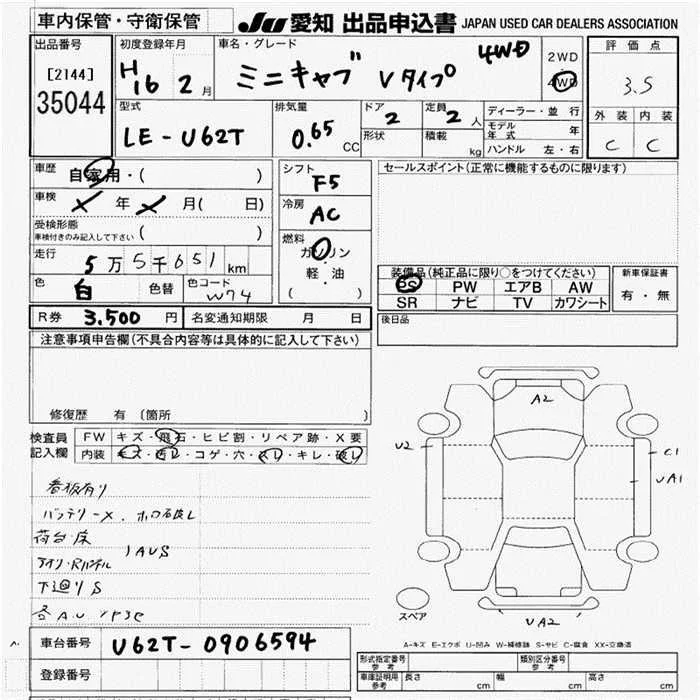 車内保管・守衛保管
JU 愛知 出品申込書 JAPAN USED CAR DEALERS ASSOCIATION
出品番号
[2144]
35044
初度登録年月
H16 2月
車名・グレード
ミニキャブ Vタイプ 4WD
2WD
4WD
評価点
3.5
外装 内装
C C
型式
LE-U62T
排気量
0.65 CC
ドア
2
定員
2 人
形状
積載
kg
ディーラー・並行
モデル年式 年
ハンドル 左・右
車歴
自家用・( )
車検
年 月( 日)
受検形態
車検付きのみ記入して下さい ( )
走行
5万5千651km
色
白
色替
色コード
W74
シフト
F5
冷房
AC
燃料
ガソリン
軽・油
( )
セールスポイント(正常に機能するものに限ります)
装備品(純正品に限り○をつけてください)
PS PW エアB AW
SR ナビ TV カワシート
新車保証書
有・無
R券 3.500 円
名変通知期限 月 日
後日品
注意事項申告欄(不具合内容等は具体的に記入して下さい)
修復歴 有 (箇所 )
検査員記入欄
FW キズ・飛石・ヒビ割・リペア跡・X要
内装 キズ・汚レ・コゲ・穴・スレ・キレ・破レ
看板有り
バッテリーX.
荷台・床
下廻りS
A2
U2
C1
UA1
UA2
スペア
A-キズ E-エクボ U-凹み W-補修跡 S-サビ C-腐食 XX-交換済
車台番号 U62T-0906594
登録番号
形式指定番号 参考
類別区分番号 参考
車庫証明用参考
長さ cm 幅 cm 高さ cm